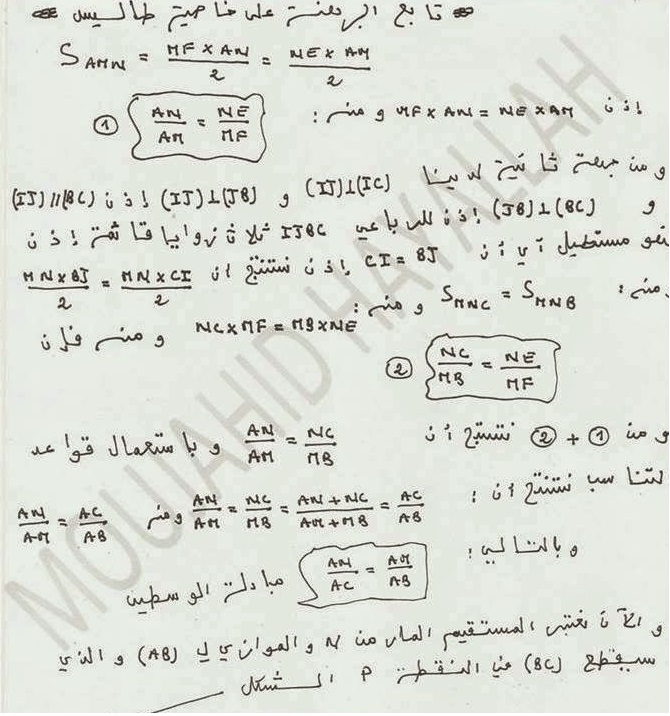 تابع البرهنة على خاصية طاليس
S_AMN = MF × AN / 2 = NE × AM / 2
إذن MF × AN = NE × AM ومنه :
① AN/AM = NE/MF
ومن جهة ثانية لدينا (IJ)⊥(IC) و (IJ)⊥(JB) إذن (IJ)//(BC)
و (JB)⊥(BC) إذن للرباعي IJBC ثلاث زوايا قائمة إذن
فهو مستطيل أي أن CI = BJ إذن نستنتج أن MN×BJ/2 = MN×CI/2
ومنه : S_MNC = S_MNB ومنه :
NC×MF = MB×NE ومنه فإن
② NC/MB = NE/MF
و من ① + ② نستنتج أن AN/AM = NC/MB و باستعمال قواعد
التناسب نستنتج أن : AN/AM = NC/MB = AN+NC/AM+MB = AC/AB ومنه AN/AM = AC/AB
و بالتالي : AN/AC = AM/AB مبادلة الوسطين
و الآن نعتبر المستقيم المار من N و الموازي لـ (AB) و الذي
سيقطع (BC) في النقطة P الشكل
MOUJAHID HAYALLAH